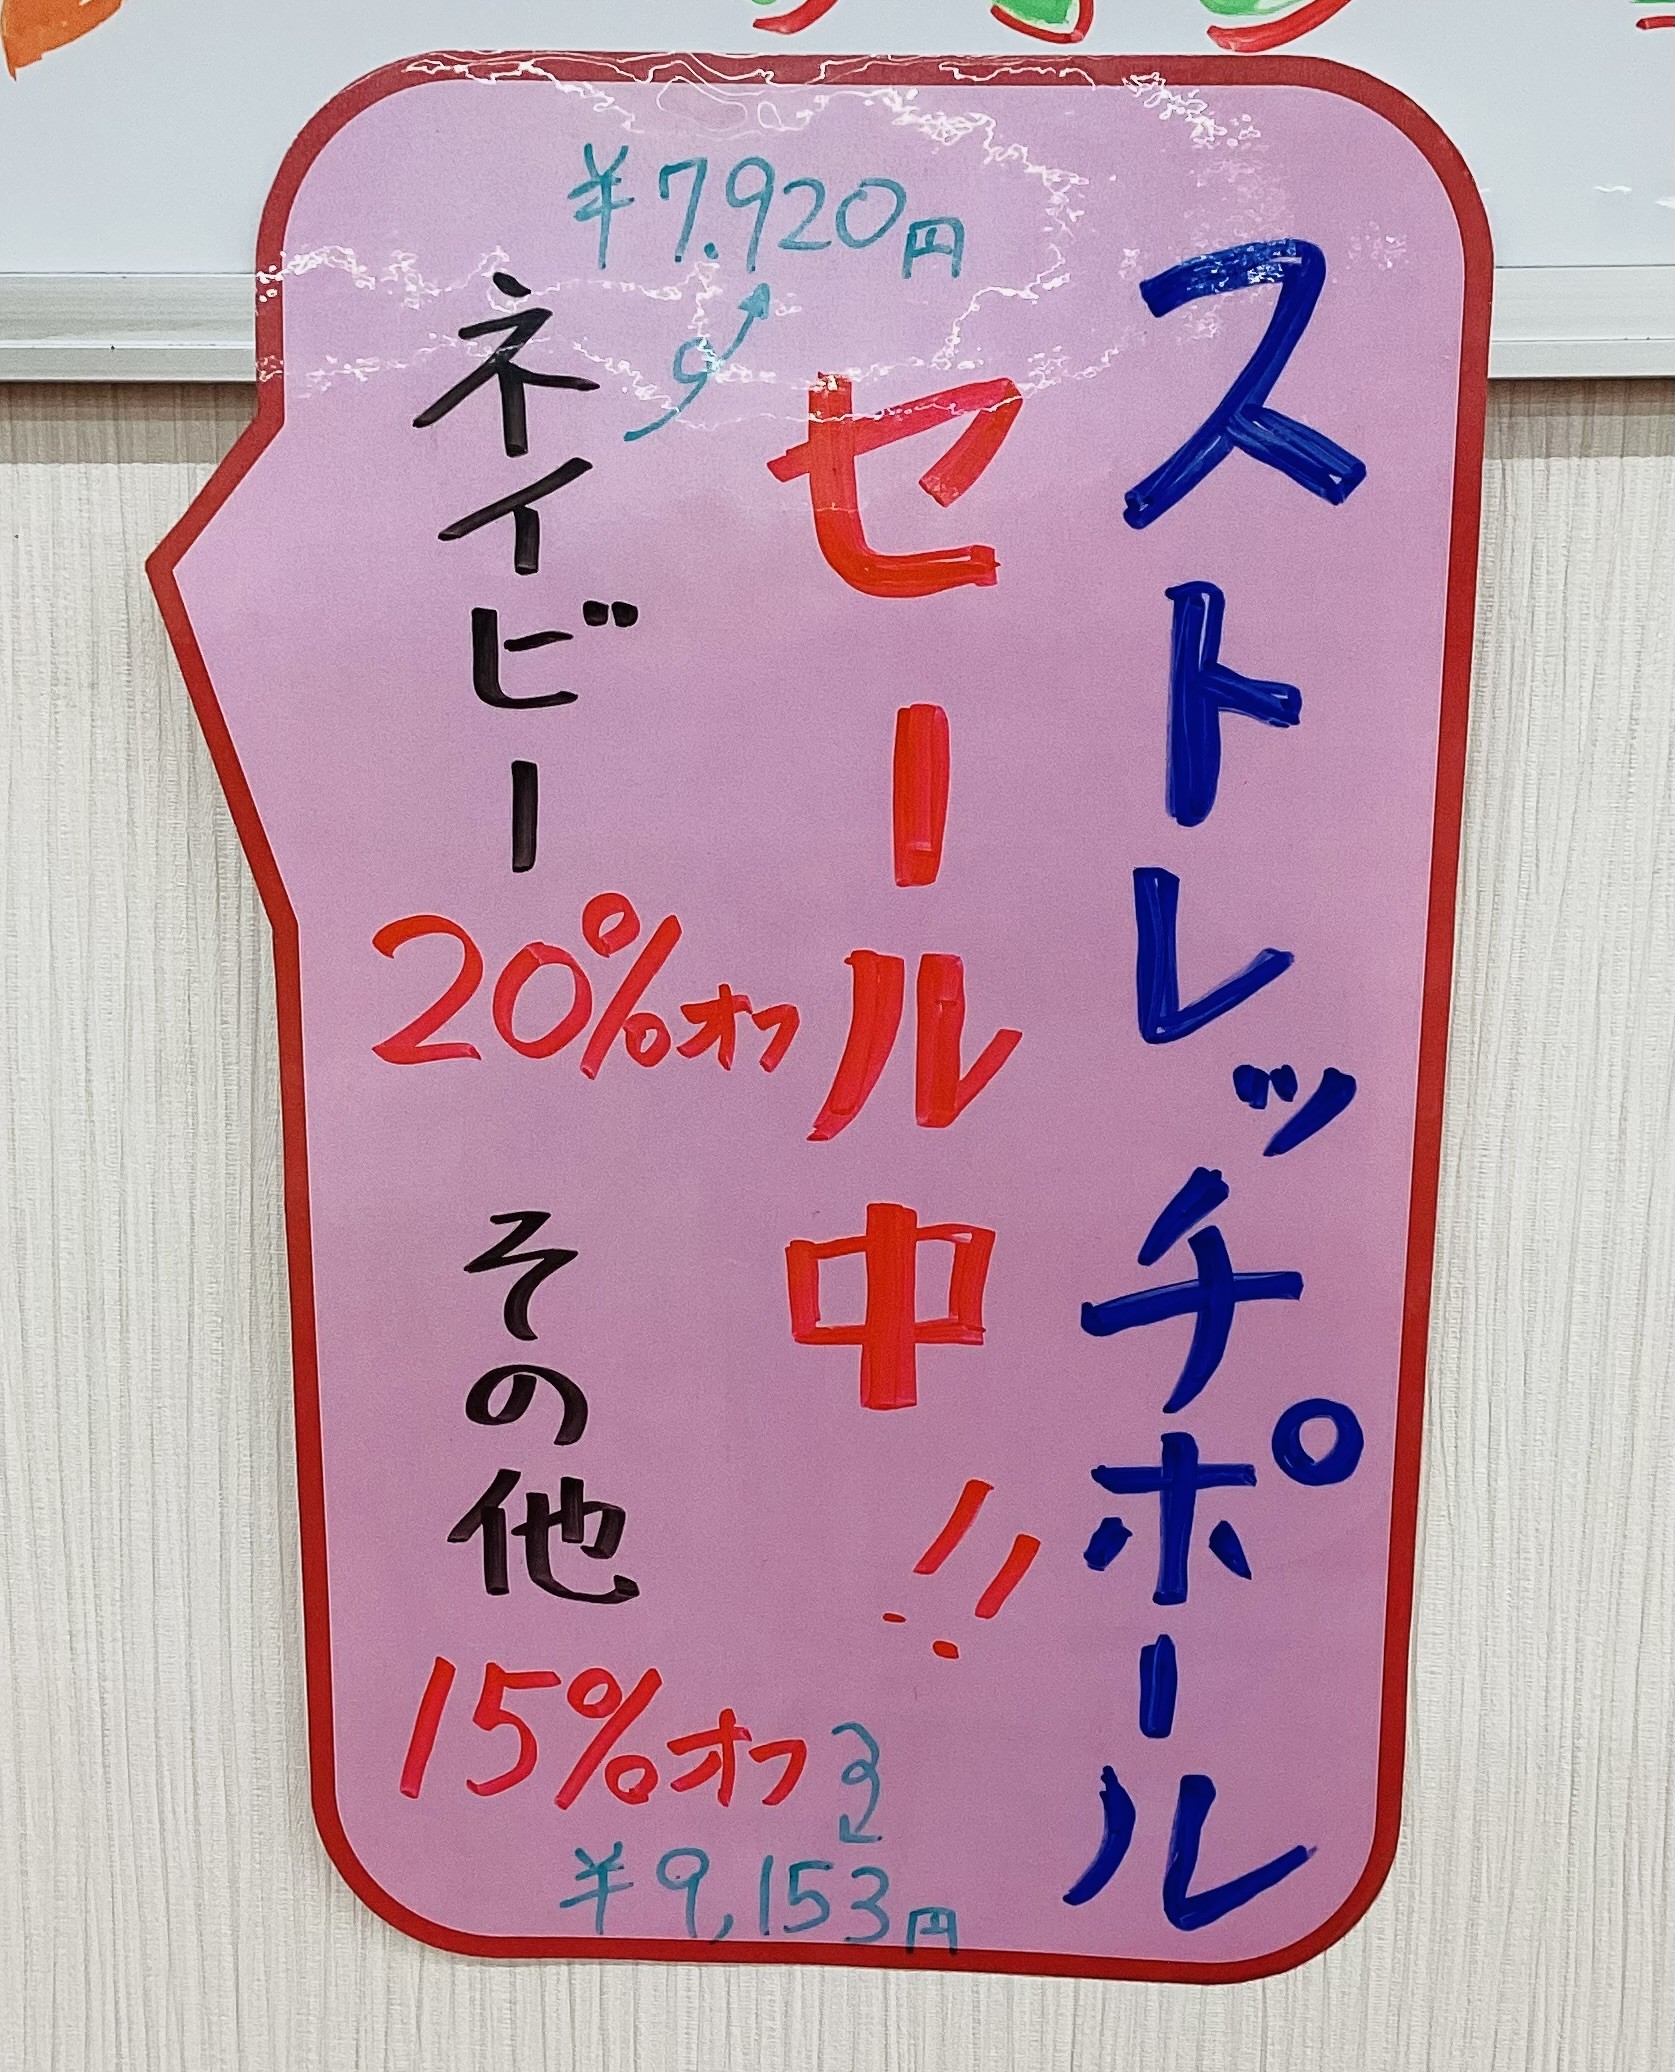 ストレッチポール
セール中!!
¥7.920円
ネイビー
20%オフ
その他
15%オフ
¥9,153円